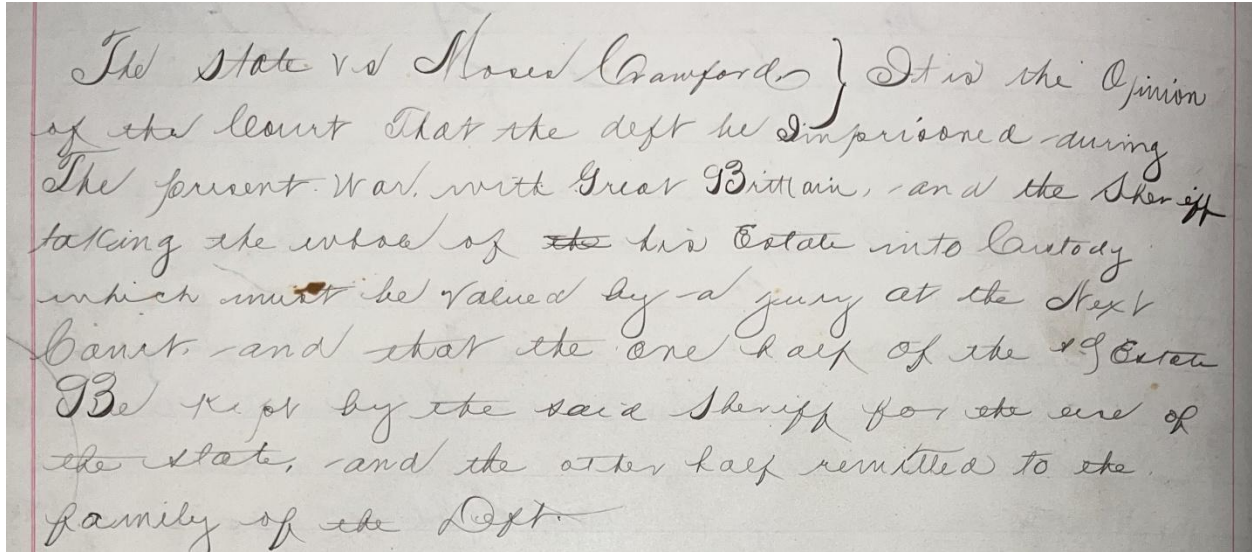 The State vs Moses Crawford } It is the Opinion
of the Court That the deft be Imprisoned during
The present War. with Great Brittain, and the Sheriff
taking the whole of the his Estate into Custody
which must be valued by a jury at the Next
Court. and that the one half of the sd Estate
Be Kept by the said Sheriff for the use of
the state, and the other half remitted to the
family of the Deft.